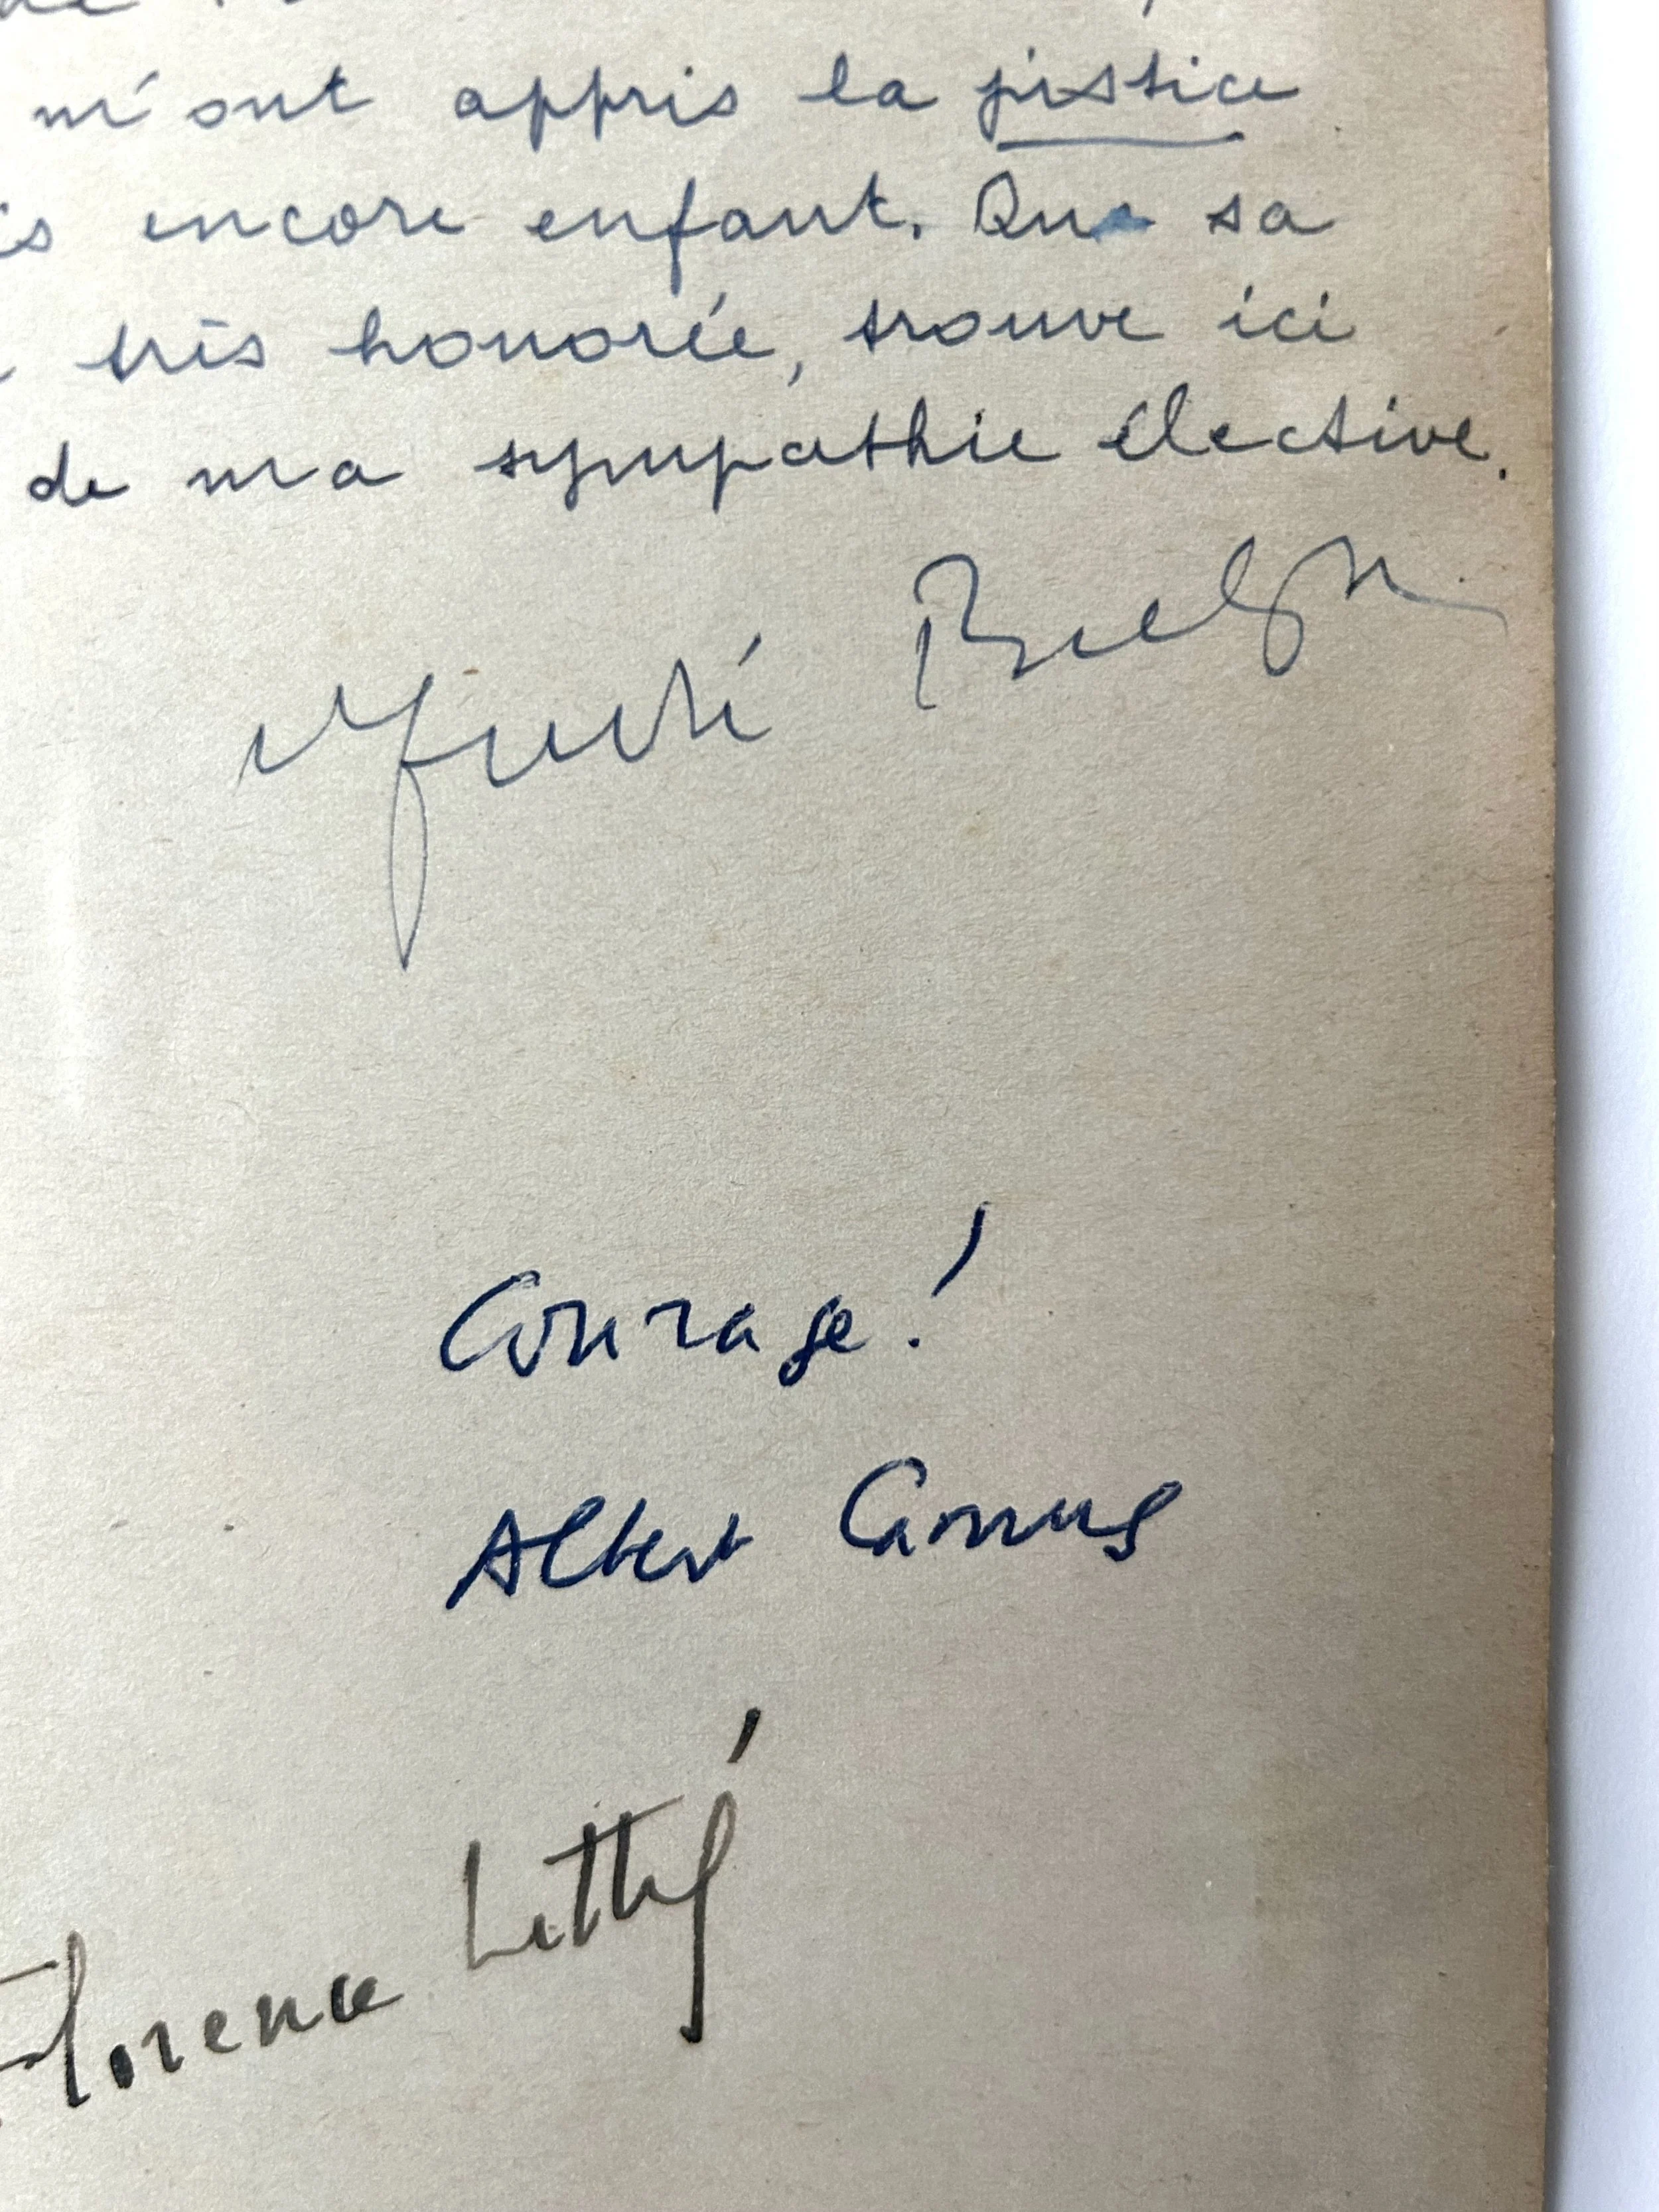 m'ont appris la justice
encore enfant. Que sa
très honorée, trouve ici
de ma sympathie élective.
André
Courage!
Albert Camus
Florence Littré